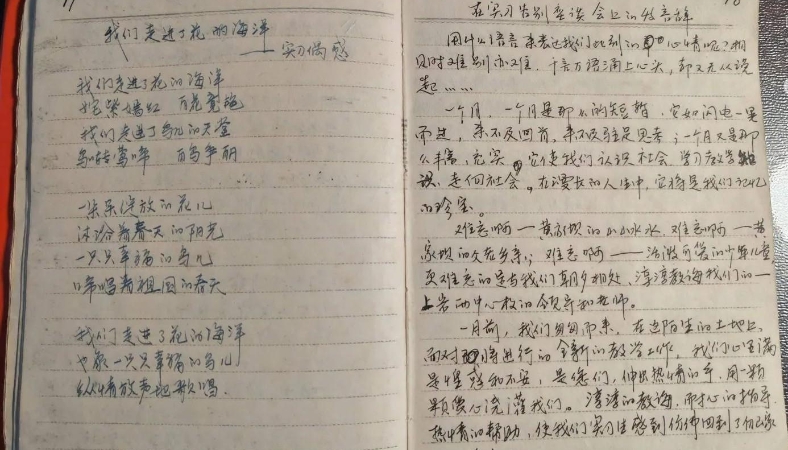 我们走进了花的海洋
——实习偶感
我们走进了花的海洋
姹紫嫣红 百花竞艳
我们走进了鸟儿的天堂
鸟啭莺啼 百鸟争鸣
一朵朵绽放的花儿
沐浴着春天的阳光
一只只幸福的鸟儿
啼唱着祖国的春天
我们走进了花的海洋
也象一只只幸福的鸟儿
纵情放声地歌唱
在实习告别座谈会上的发言辞
用什么语言来表达我们此刻的心情呢？相
见时难别亦难，千言万语涌上心头，却又无从说
起……
一个月，一个月是那么的短暂，它如闪电一晃
而过，来不及回首，来不及驻足思考；一个月又是那
么丰富、充实，它使我们认识社会，学习教学知
识，走向社会。在漫长的人生中，它将是我们记忆
的珍宝。
难忘啊——黄家坝的山山水水，难忘啊——黄
家坝的父老乡亲；难忘啊——活泼可爱的少年儿童，
更难忘的是与我们朝夕相处、淳淳教诲我们的——
上岩而中心校的领导和老师。
一月前，我们匆匆而来，在这陌生的土地上，
面对将进行的全新的教学工作，我们心里满
是惶惑和不安，是您们，伸出热情的手，用一颗
颗爱心浇灌我们。淳淳的教诲，耐心的指导，
热情的帮助，使我们实习生感到仿佛回到了自己家